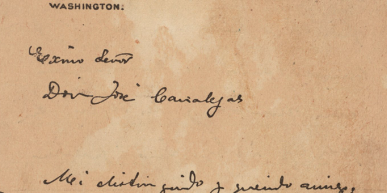 WASHINGTON.
Exmo Señor
Don José Canalejas
Mi distinguido y querido amigo,